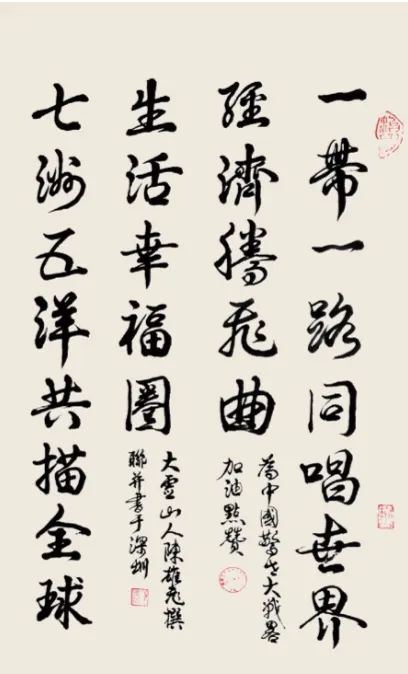 一帶一路同唱世界
經濟騰飛曲
為中國大戰畧
加油點贊
生活幸福圈
大山人陳雄飛撰
聯并書于深圳
七洲五洋共描全球